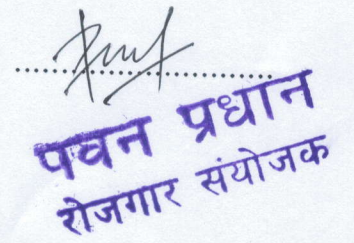 पवन प्रधान
रोजगार संयोजक